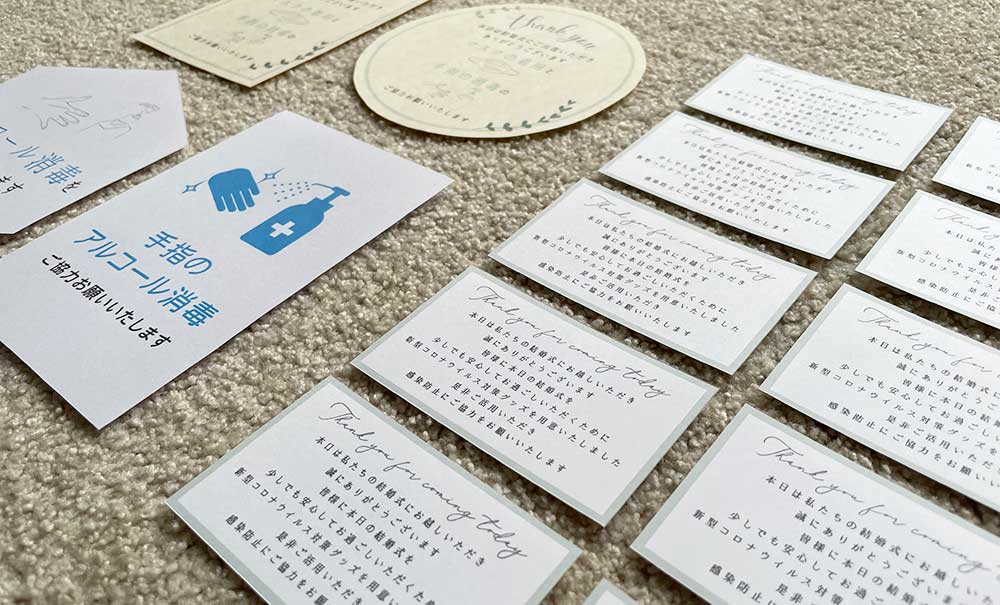 ご協力お願いいたします
thank you
マスクの着用と
手指の消毒の
ご協力お願いいたします
コール消毒を
ます
手指の
アルコール消毒
ご協力お願いいたします
Thank you for coming today
本日は私たちの結婚式にお越しいただき
誠にありがとうございます
皆様に本日の結婚式を
少しでも安心してお過ごしいただくために
新型コロナウイルス対策グッズを用意いたしました
是非ご活用いただき
感染防止にご協力をお願いいたします
Thank you for coming today
本日は私たちの結婚式にお越しいただき
誠にありがとうございます
皆様に本日の結婚式を
少しでも安心してお過ごしいただくために
新型コロナウイルス対策グッズを用意いたしました
是非ご活用いただき
感染防止にご協力をお願いいたします
Thank you for coming today
本日は私たちの結婚式にお越しいただき
誠にありがとうございます
皆様に本日の結婚式を
少しでも安心してお過ごしいただくために
新型コロナウイルス対策グッズを用意いたしました
是非ご活用いただき
感染防止にご協力をお願いいたします
Thank you for coming today
本日は私たちの結婚式にお越しいただき
誠にありがとうございます
皆様に本日の結婚式を
少しでも安心してお過ごしいただくために
新型コロナウイルス対策グッズを用意いたしました
是非ご活用いただき
感染防止にご協力をお願いいたします
Thank you for coming today
本日は私たちの結婚式にお越しいただき
誠にありがとうございます
皆様に本日の結婚式を
少しでも安心してお過ごしいただくため
新型コロナウイルス対策グッズを用意
是非ご活用いただ
感染防止にご協力をお
Thank you for
本日は私たちの
誠にありがと
皆様に本日
少しでも安心して
新型コロナウイルス
Thank you for
本日は私たちの結婚式
誠にありがとう
皆様に本日の結婚
少しでも安心してお過ご
新型コロナウイルス対策グッズ
是非ご活用い
感染防止にご協力をお願い
Thank you for coming
本日は私たちの結婚式にお越
誠にありがとうござい
皆様に本日の結婚
少しでも安心してお過
新型コロナウイルス対策
是非ご
感染防止にご